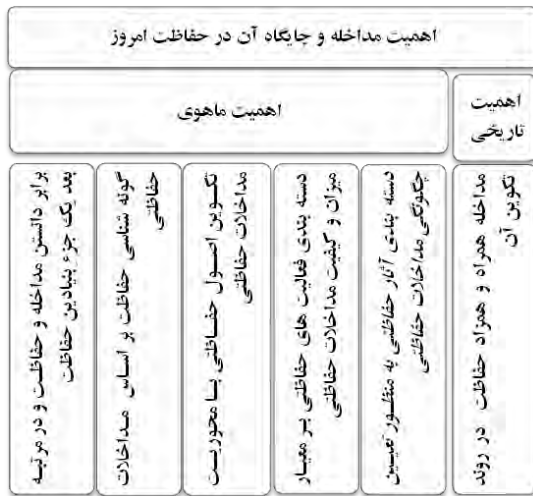 اهمیت مداخله و جایگاه آن در حفاظت امروز
اهمیت
تاریخی
اهمیت ماهوی
مداخله همراه و همزاد حفاظت در روند
تکوین آن
دسته بندی آثار حفاظتی به منظور تعیین
چگونگی مداخلات حفاظتی
دسته بندی فعالیت های حفاظتی بر معیار
میزان و کیفیت مداخلات حفاظتی
تکوین اصول حفاظتی با محوریت
مداخلات حفاظتی
گونه شناسی حفاظت بر اساس مداخلات
حفاظتی
برابر دانستن مداخله و حفاظت و در مرتبه
بعد یک جزء بنیادین حفاظت